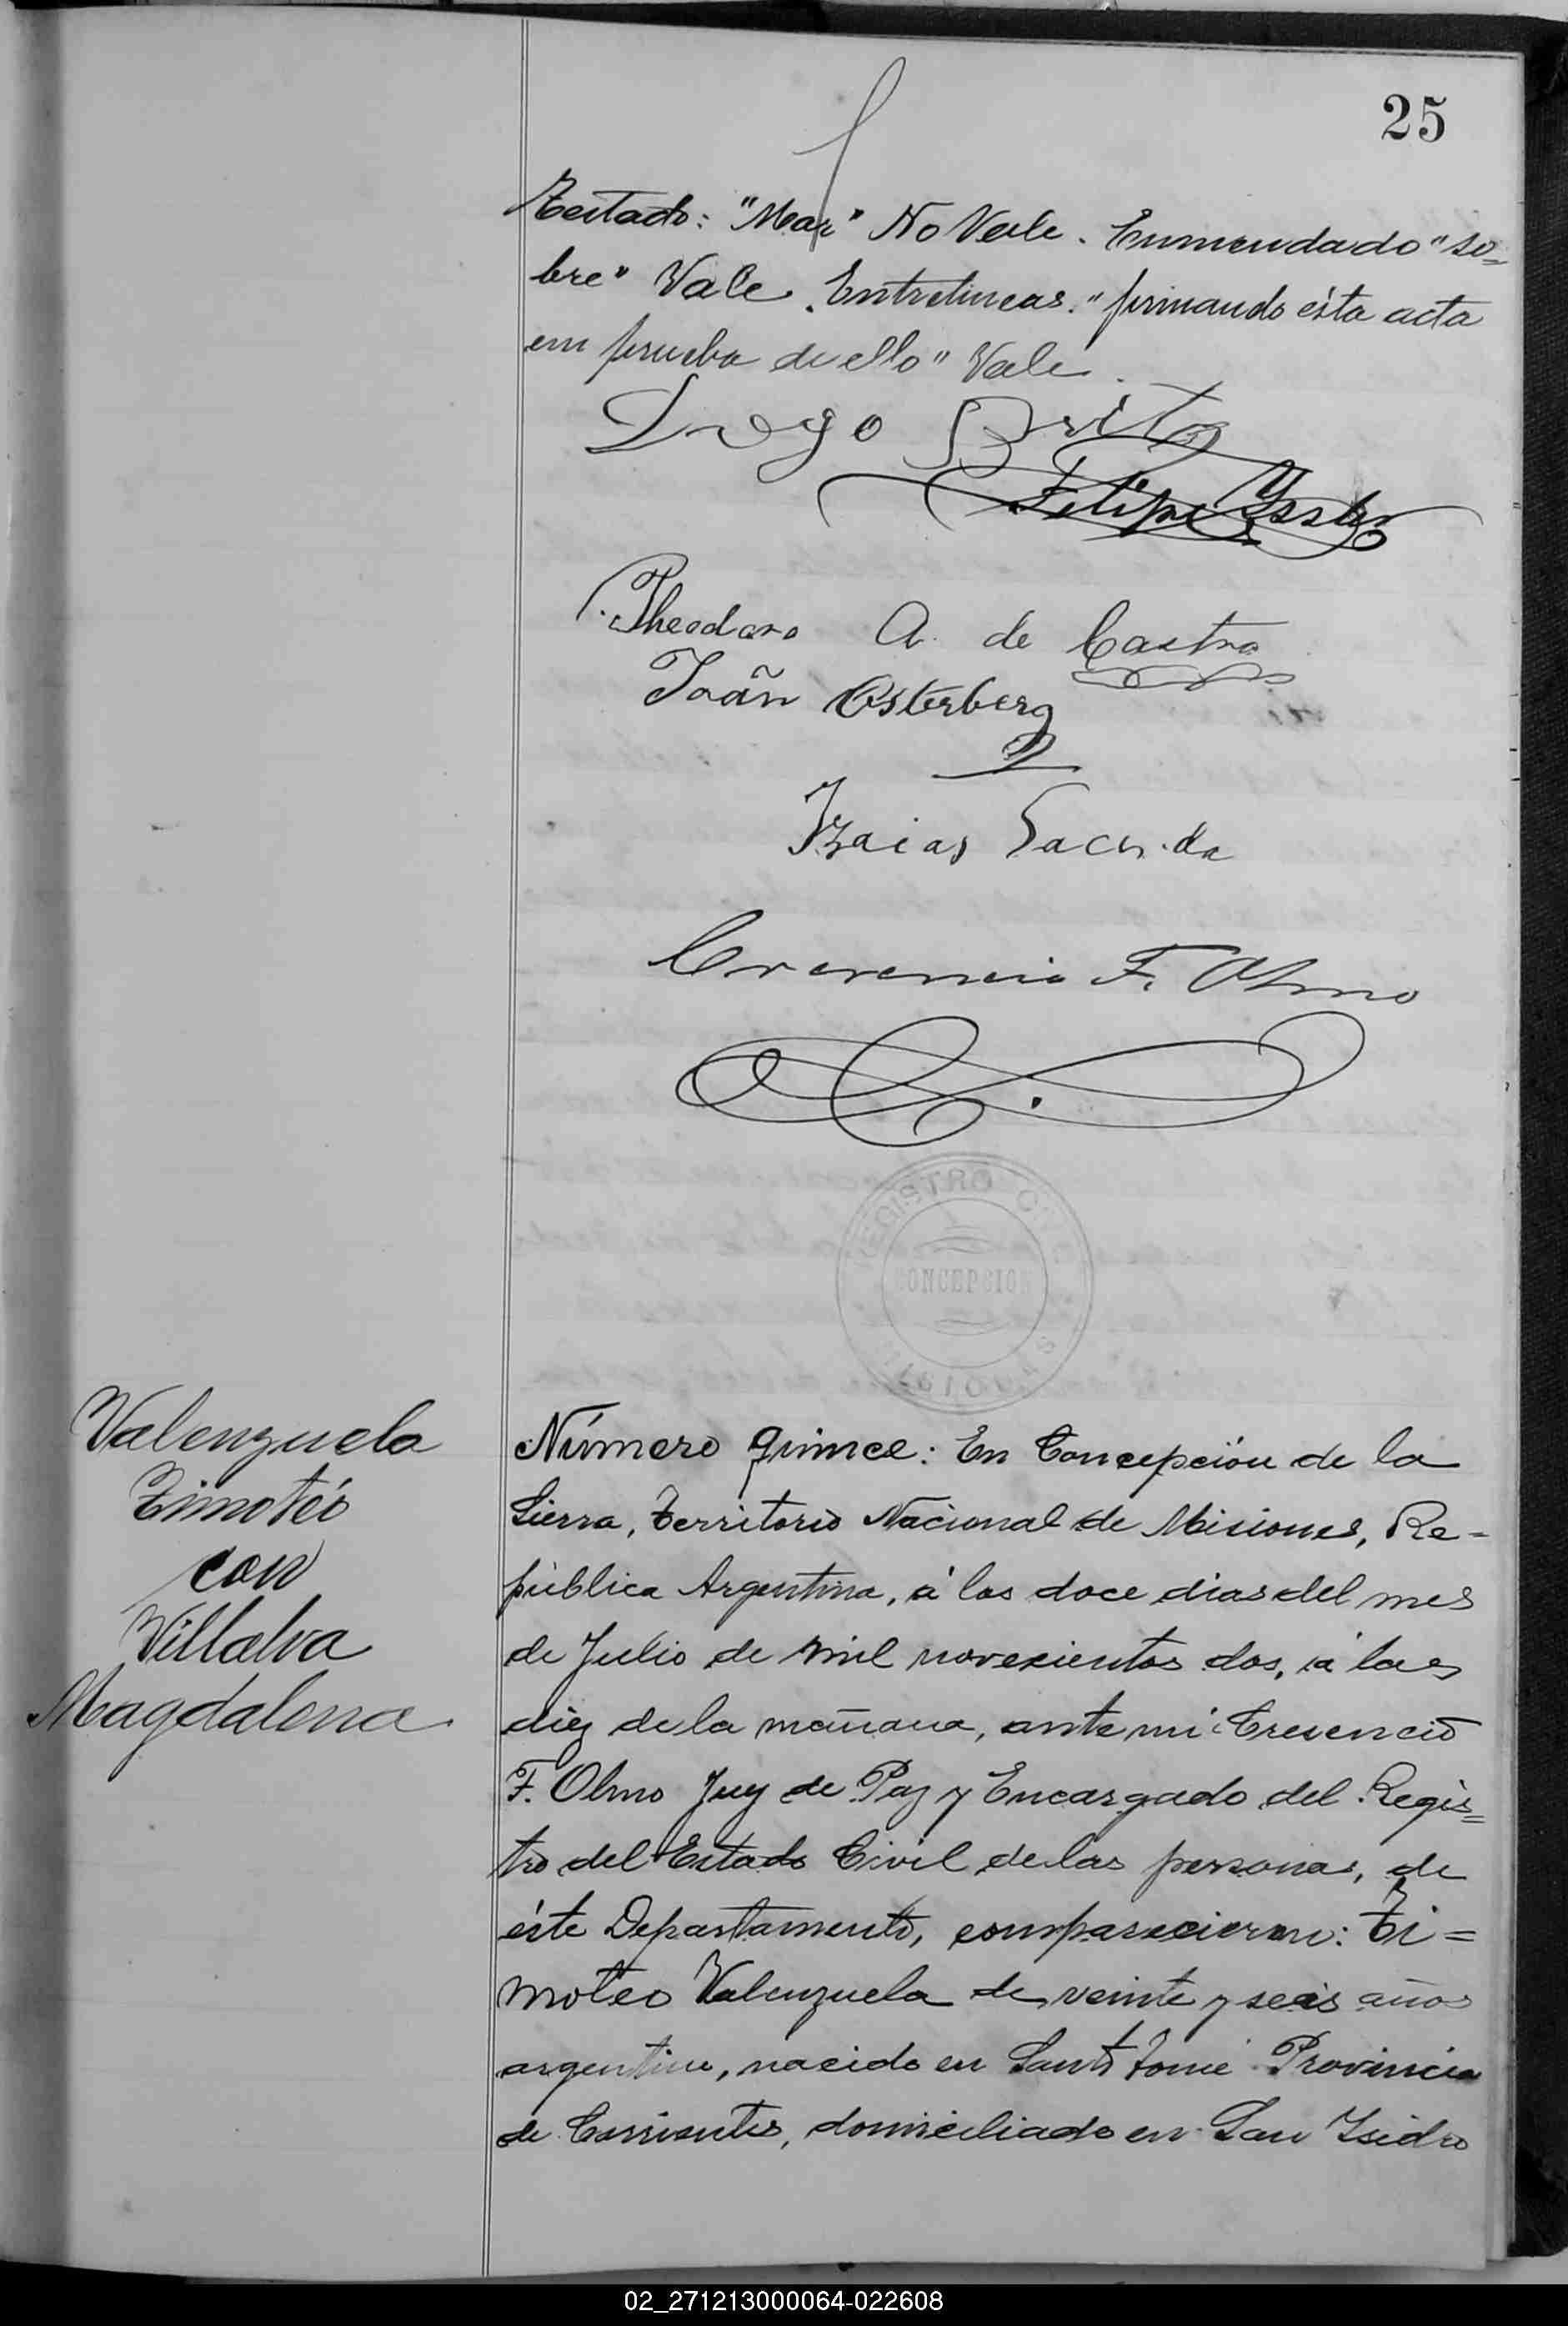 25
Testado: "Mar" No Vale. Enmendado "so=
bre" Vale. Entrelineas. "firmando ésta acta
em prueba de ello" Vale.
Brito
Felipe
Theodoro A. de Castro
Joãn Osterberg
Izaias
Crecencio F. Olmo
REGISTRO CIVIL
CONCEPCION
MISIONES
Valenzuela
Timotéo
con
Villalva
Magdalena
Número quince: En Concepción de la
Sierra, Territorio Nacional de Misiones, Re-
pública Argentina, á los doce dias del mes
de Julio de mil novecientos dos, á las
diez de la mañana, ante mi Crecencio
F. Olmo Juez de Paz y Encargado del Regis=
tro del Estado Civil de las personas, de
éste Departamento, comparecieron: Ti=
moteo Valenzuela de veinte y seis años
argentino, nacido en Santo Tomé Provincia
de Corrientes, domiciliado en San Isidro
02_271213000064-022608